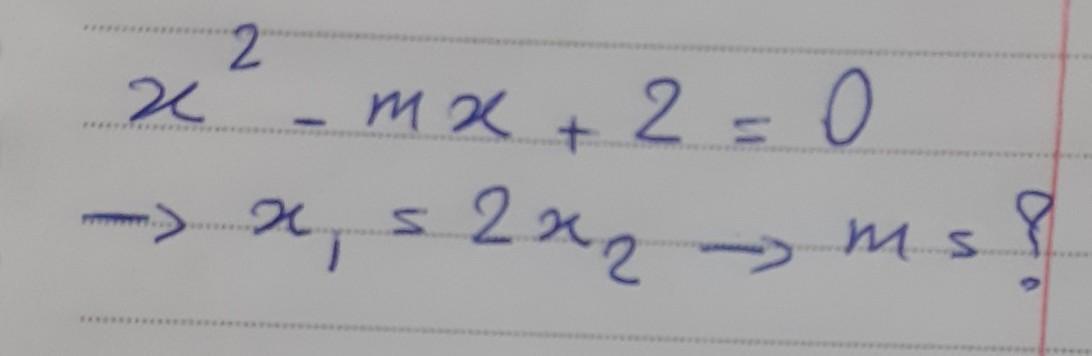 x² - mx + 2 = 0
→ x₁ = 2x₂ → m = ?